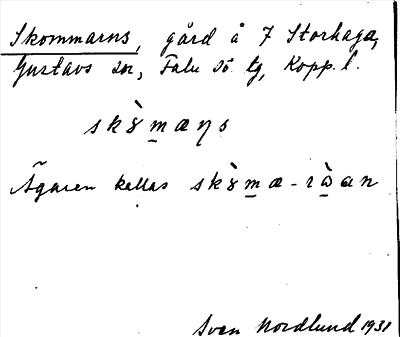 Skommarns, gård å 7 Storhaga,
Gustavs sn, Falu sö. tg, Kopp. l.
skɤ̀m̲æŋs
Ägaren kallas skɤ̀m̲æ-rὼan
Sven Nordlund 1931